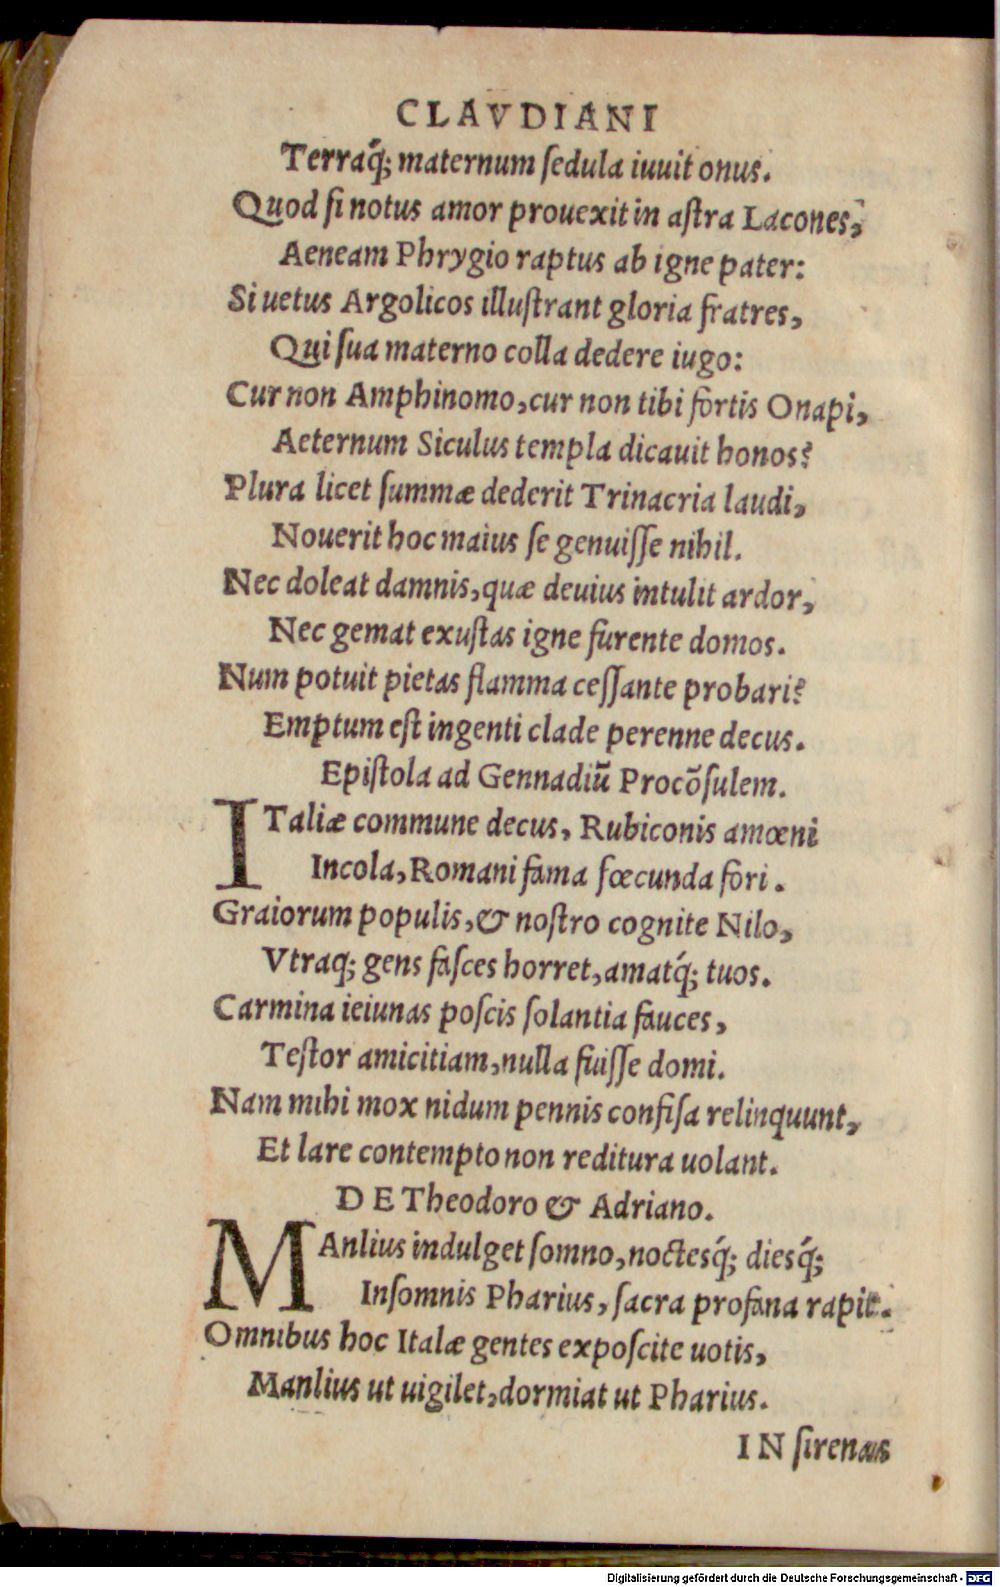 CLAVDIANI
Terraq́; maternum ſedula iuuit onus.
Quod ſi notus amor prouexit in aſtra Lacones,
Aeneam Phrygio raptus ab igne pater:
Si uetus Argolicos illuſtrant gloria fratres,
Qui ſua materno colla dedere iugo:
Cur non Amphinomo, cur non tibi fortis Onapi,
Aeternum Siculus templa dicauit honos?
Plura licet ſummæ dederit Trinacria laudi,
Nouerit hoc maius ſe genuiſſe nihil.
Nec doleat damnis, quæ deuius intulit ardor,
Nec gemat exuſtas igne furente domos.
Num potuit pietas flamma ceſſante probari?
Emptum eſt ingenti clade perenne decus.
Epiſtola ad Gennadiū Procōſulem.
ITaliæ commune decus, Rubiconis amœni
Incola, Romani fama fœcunda fori.
Graiorum populis, & noſtro cognite Nilo,
Vtraq; gens faſces horret, amatq́; tuos.
Carmina ieiunas poſcis ſolantia fauces,
Teſtor amicitiam, nulla fuiſſe domi.
Nam mihi mox nidum pennis confiſa relinquunt,
Et lare contempto non reditura uolant.
DE Theodoro & Adriano.
MAnlius indulget ſomno, noctesq́; diesq́;
Inſomnis Pharius, ſacra profana rapit.
Omnibus hoc Italæ gentes expoſcite uotis,
Manlius ut uigilet, dormiat ut Pharius.
IN ſirenas
Digitalisierung gefördert durch die Deutsche Forschungsgemeinschaft - DFG